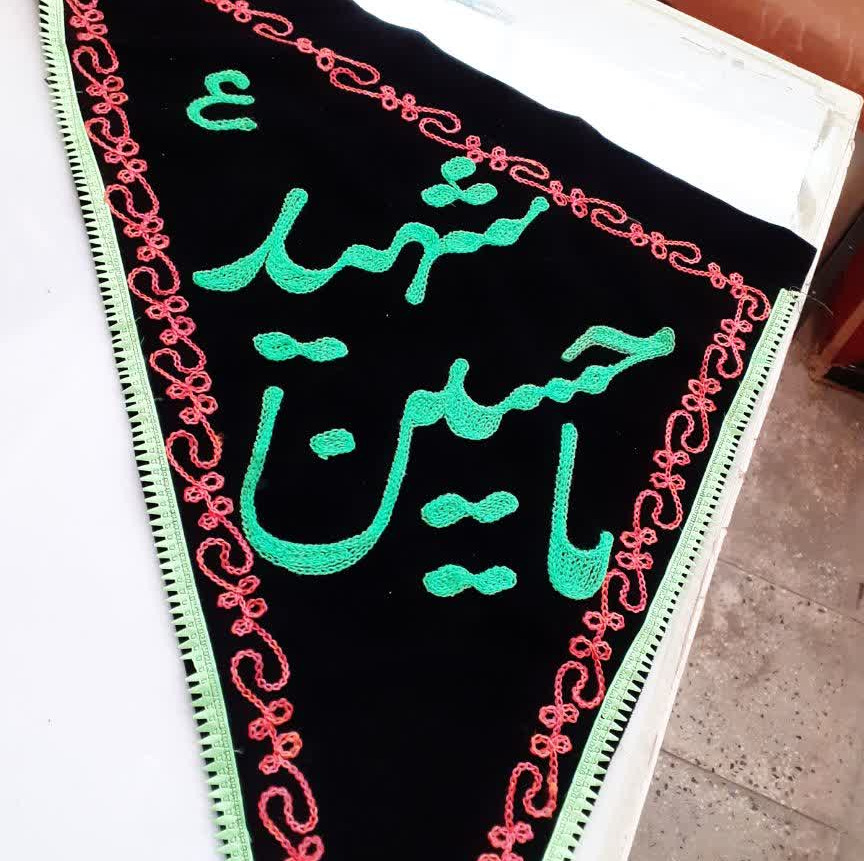 یا حسین
شهید
ع